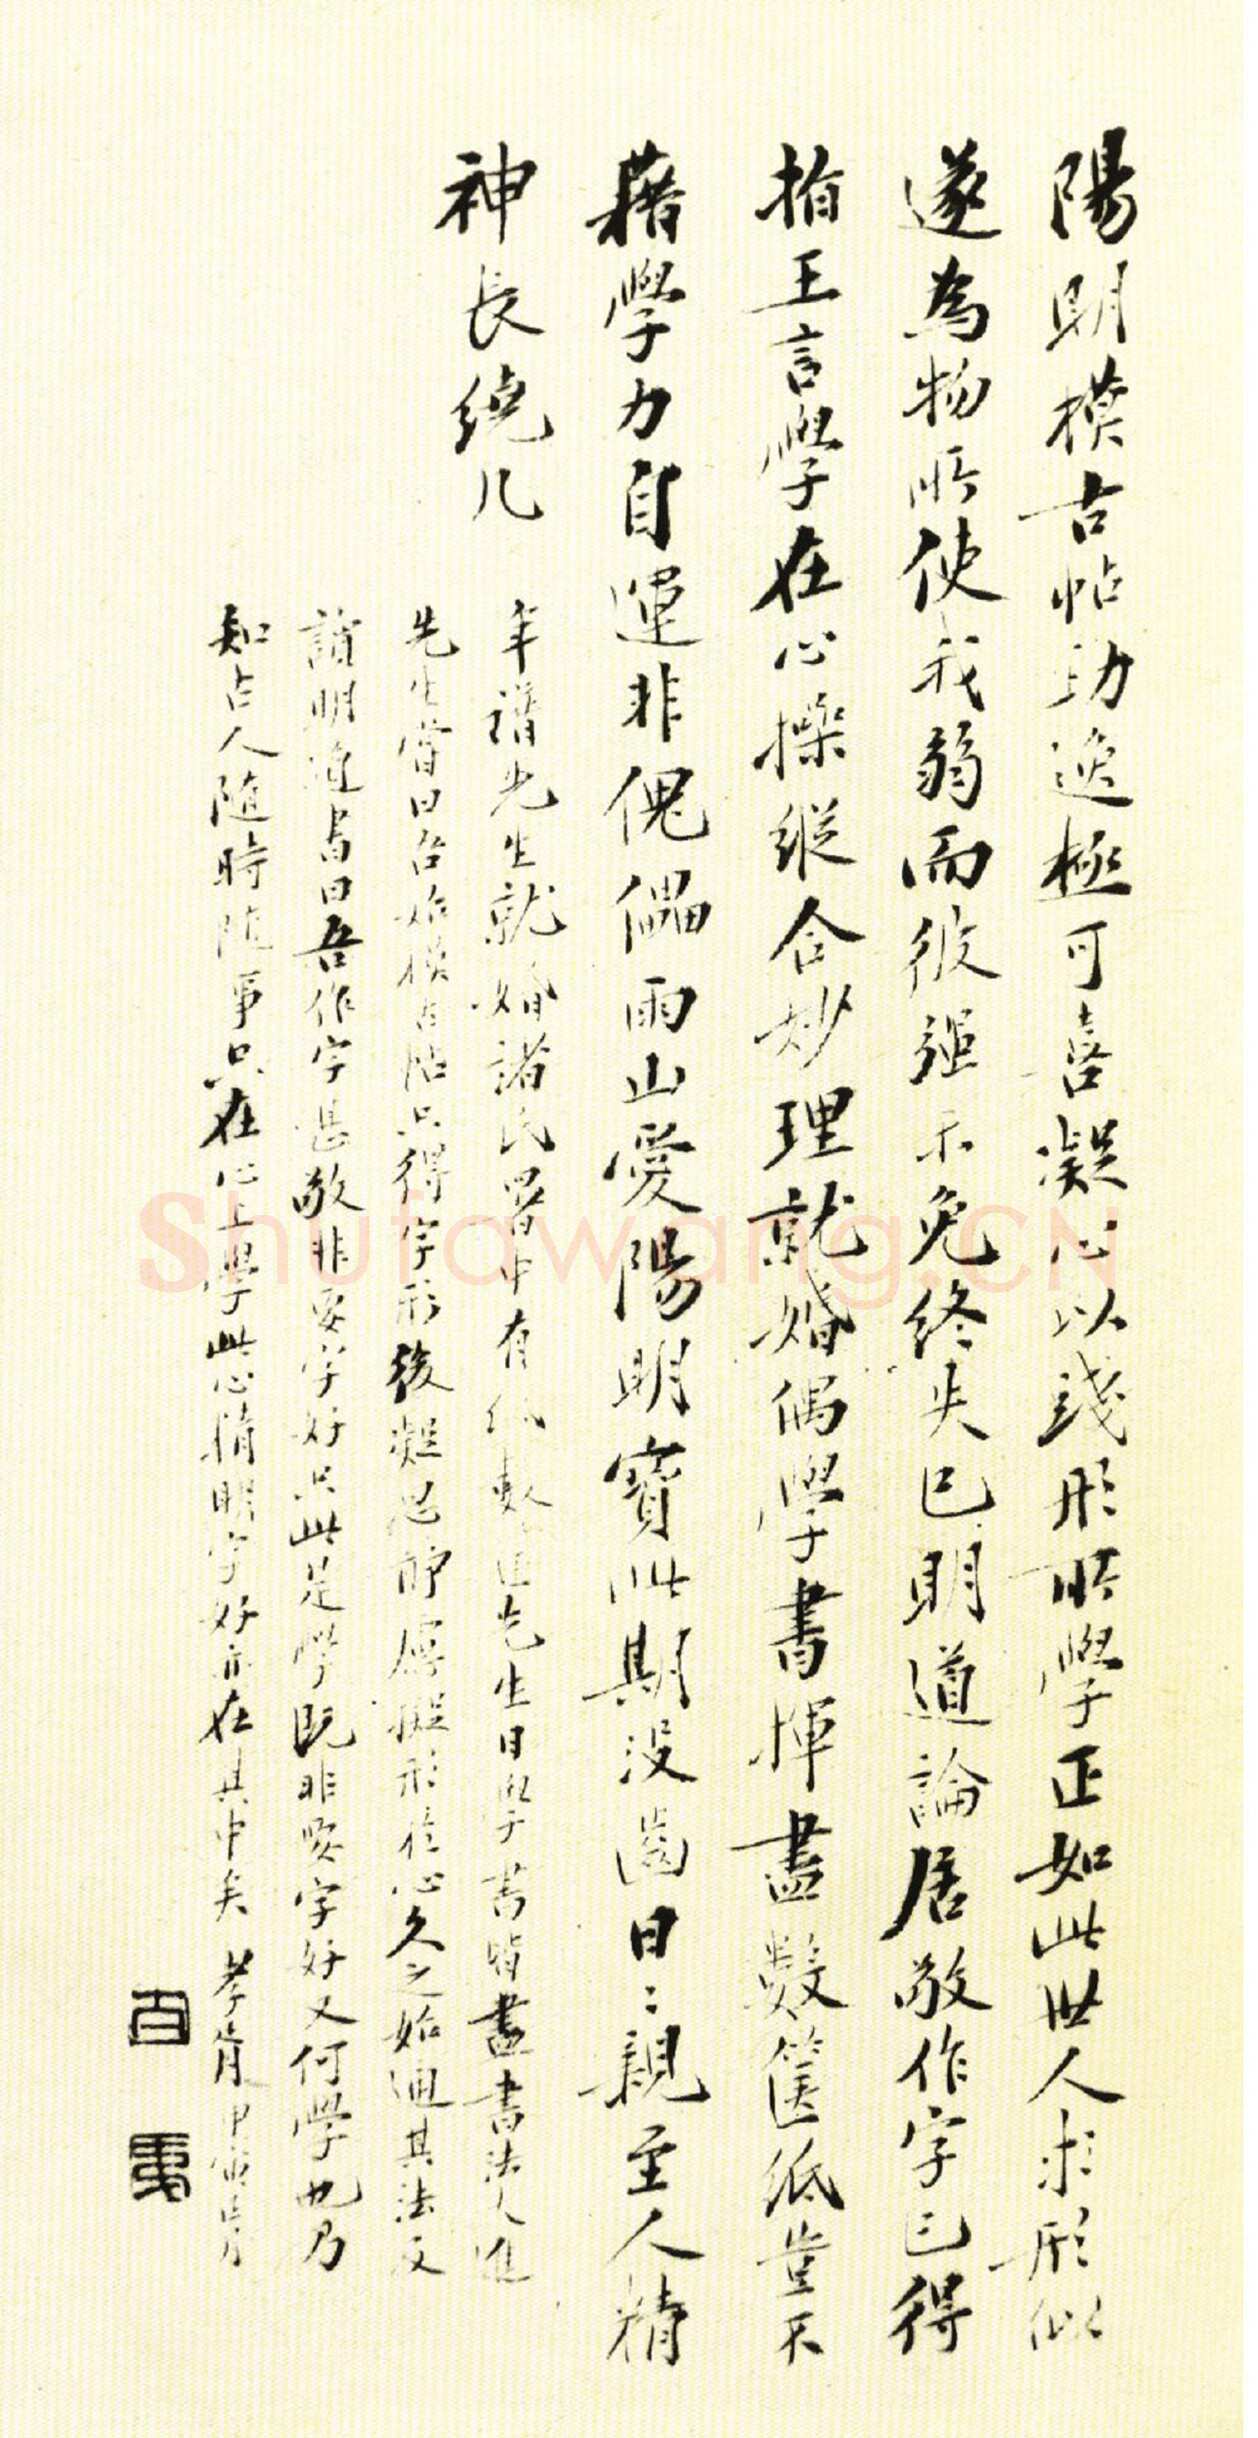 陽明模古帖功邃極可喜凝心以踐形所學正如此世人求形似
遂為物所使我弱而彼強不免終失已明道論居敬作字已得
指王言學在心操縱合妙理就婚偶學書揮盡數篋紙豈不
藉學力自運非傀儡雨山愛陽明寶此期没齒日:親至人精
神長繞几
年譜先生就婚諸氏署中有紙數篋先生日學書皆盡書法大進
先生嘗曰吾始模古帖只得字形後凝思靜慮擬形於心久之始通其法及
讀明道書曰吾作字甚敬非要字好只此是學既非要字好又何學也乃
知古人隨時隨事只在心上學此心精明字好亦在其中矣 孝胥
Shufawang.CN